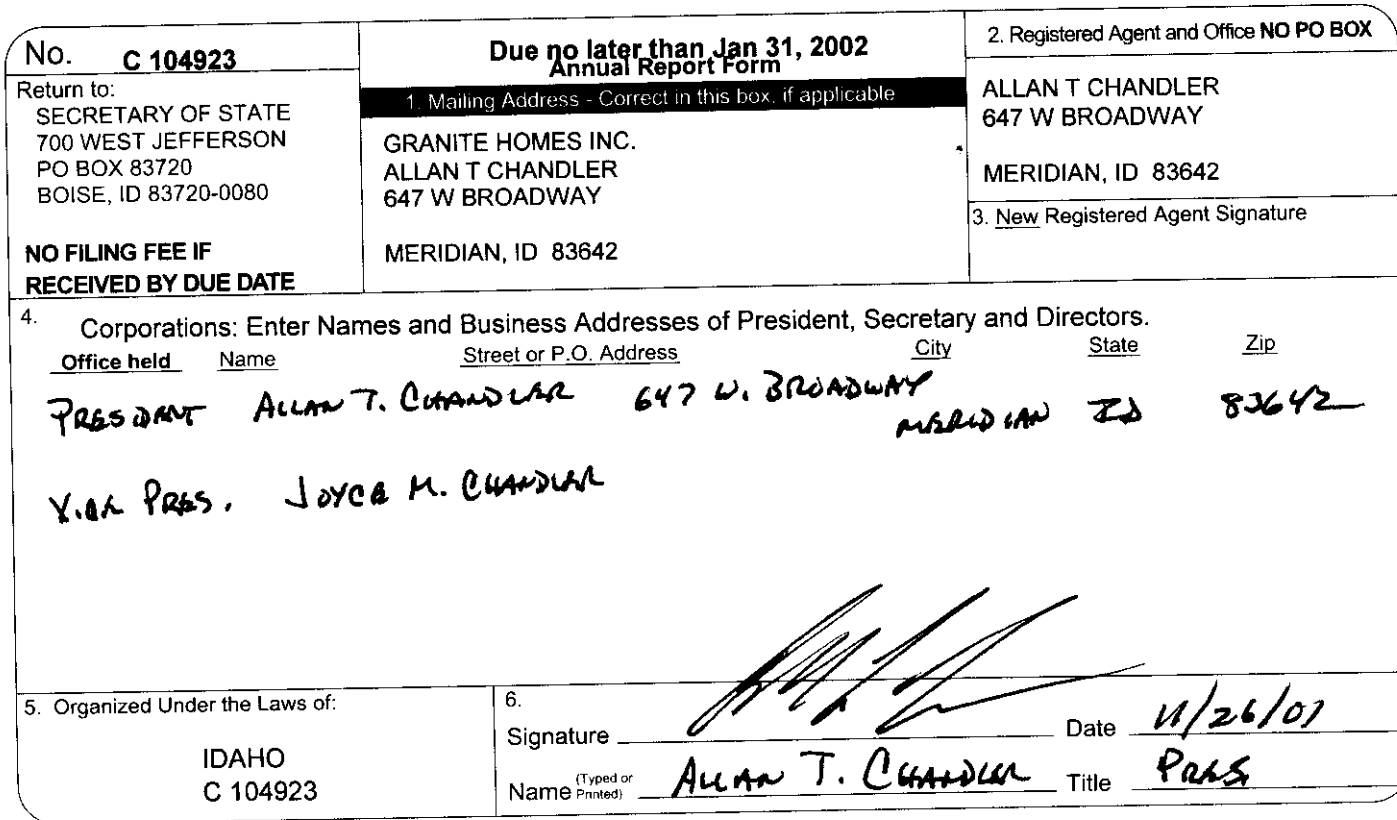 No. C 104923
Return to:
SECRETARY OF STATE
700 WEST JEFFERSON
PO BOX 83720
BOISE, ID 83720-0080
NO FILING FEE IF
RECEIVED BY DUE DATE
Due no later than Jan 31, 2002
Annual Report Form
1. Mailing Address - Correct in this box, if applicable
GRANITE HOMES INC.
ALLAN T CHANDLER
647 W BROADWAY
MERIDIAN, ID 83642
2. Registered Agent and Office NO PO BOX
ALLAN T CHANDLER
647 W BROADWAY
MERIDIAN, ID 83642
3. New Registered Agent Signature
4. Corporations: Enter Names and Business Addresses of President, Secretary and Directors.
Office held Name Street or P.O. Address City State Zip
PRESIDENT ALLAN T. CHANDLER 647 W. BROADWAY MERIDIAN ID 83642
VICE PRES. JOYCE M. CHANDLER
5. Organized Under the Laws of:
IDAHO
C 104923
6.
Signature Date 11/26/01
Name (Typed or Printed) ALLAN T. CHANDLER Title PRES.